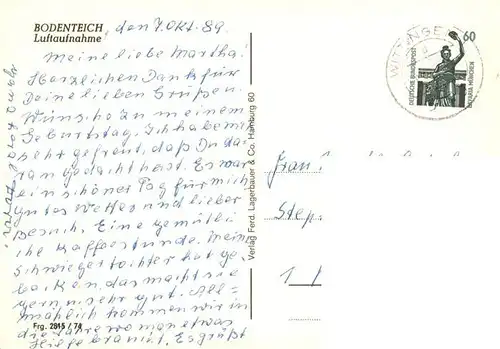 BODENTEICH
Luftaufnahme
, den 7. Okt. 89.
Meine liebe Martha!
Herzlichen Dank für
Deine lieben Grüßen.
Wünsche zu meinem
Geburtstag. Ich habe mich
sehr gefreut, daß Du da-
ran gedacht hast. Es war
ein schöner Tag für mich
gutes Wetter und lieber
Besuch. Eine gemütli
che Kaffeestunde. Meine
Schwiegertochter hat ge-
backen, das macht sie
gern u. sehr gut. All-
mählich kommen wir in
die Jahre wo man etwas
Hilfe braucht. Es grüßt
Frg. 2815 / 74
Verlag Ferd. Lagerbauer & Co. Hamburg 60
60
DEUTSCHE BUNDESPOST
BAVARIA MÜNCHEN
WITTINGE
Frau
Step
1